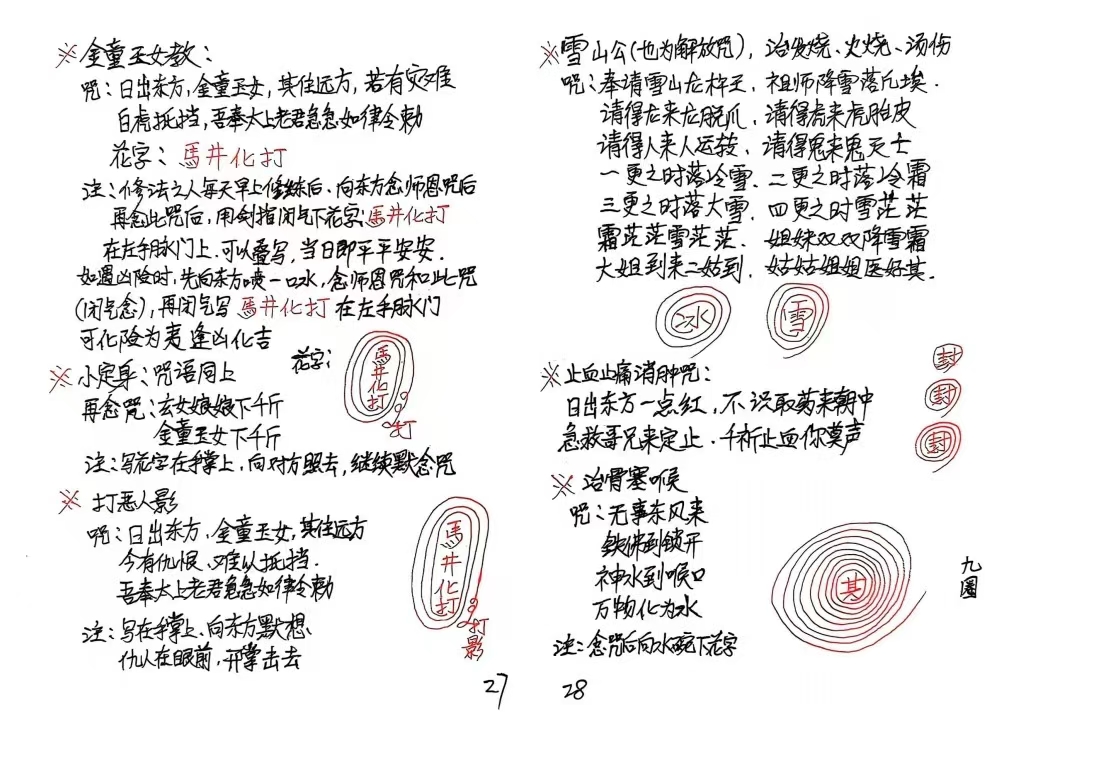 ※ 金童玉女教：
咒：日出东方，金童玉女，其住远方，若有灾难
白虎抵挡，吾奉太上老君急急如律令勅
花字：馬井化打
注：修法之人每天早上修练后、向东方念师恩咒后
再念此咒后，用剑指闭气下花字：馬井化打
在左手脉门上、可以叠写，当日即平平安安．
如遇凶险时，先向东方喷一口水，念师恩咒和此咒
(闭气念)，再闭气写 馬井化打 在左手脉门
可化险为夷 逢凶化吉
※ 小定身：咒语同上
花字：
馬井化打
打
再念咒：玄女娘娘下千斤
金童玉女下千斤
注：写花字在手掌上，向对方照去，继续默念咒
※ 打恶人影
咒：日出东方、金童玉女，其住远方
今有仇恨、难以抵挡．
吾奉太上老君急急如律令勅
注：写在手掌上、向东方默想、
仇人在眼前，开掌击去
馬井化打
打影
27
※ 雪山公(也为解放咒)，治发烧、火烧、汤伤
咒：奉请雪山龙 王，祖师降雪落凡埃．
请得龙来龙脱爪、请得虎来虎胎皮
请得人来人运转、请得鬼来鬼灭亡
一更之时落冷雪、二更之时落冷霜
三更之时落大雪、四更之时雪茫茫
霜茫茫雪茫茫、姐妹双双降雪霜
大姐到来二姑到、姑姑姐姐医好其．
冰 雪
※ 止血止痛消肿咒：
日出东方一点红，不识取 来朝中
急救哥兄来定止．千祈止血你莫声
封
封
封
※ 治骨塞喉
咒：无事东风来
铁佛到锁开
神水到喉口
万物化为水
注：念咒后向水碗下花字
其
九圈
28